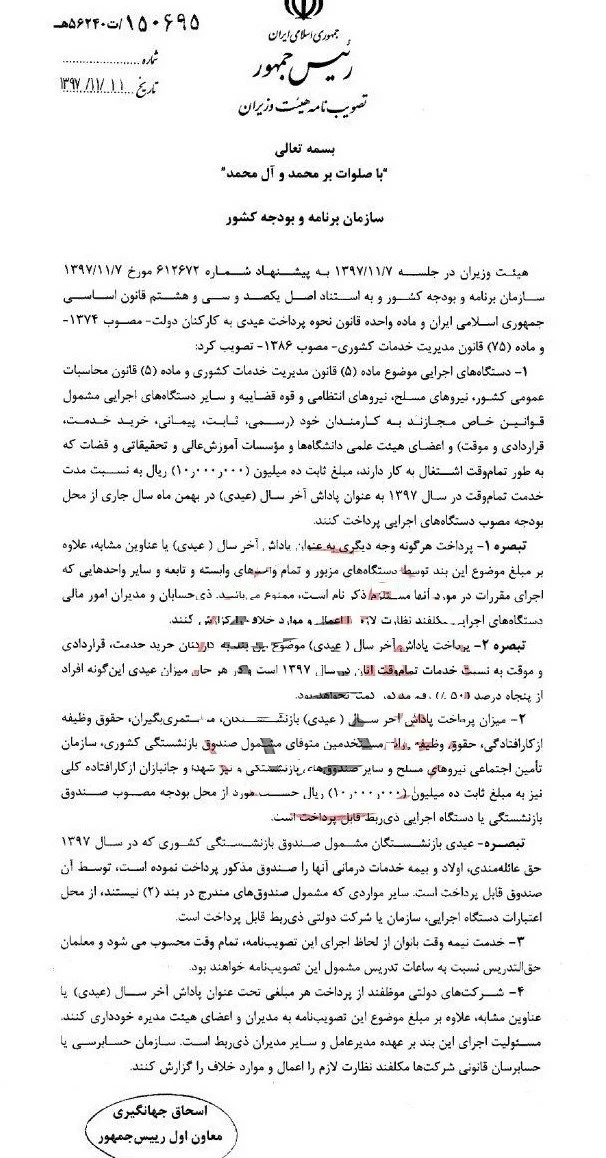 ۱۵۰۶۹۵/ت۵۶۲۴۰هـ
شماره
تاریخ ۱۳۹۷/۱۱/۱۱
جمهوری اسلامی ایران
رئیس جمهور
تصویب نامه هیئت وزیران
بسمه تعالی
"با صلوات بر محمد و آل محمد"
سازمان برنامه و بودجه کشور
هیئت وزیران در جلسه ۱۳۹۷/۱۱/۷ به پیشنهاد شماره ۶۱۲۶۷۲ مورخ ۱۳۹۷/۱۱/۷
سازمان برنامه و بودجه کشور و به استناد اصل یکصد و سی و هشتم قانون اساسی
جمهوری اسلامی ایران و ماده واحده قانون نحوه پرداخت عیدی به کارکنان دولت- مصوب ۱۳۷۴-
و ماده (۷۵) قانون مدیریت خدمات کشوری- مصوب ۱۳۸۶- تصویب کرد:
۱- دستگاه‌های اجرایی موضوع ماده (۵) قانون مدیریت خدمات کشوری و ماده (۵) قانون محاسبات
عمومی کشور، نیروهای مسلح، نیروهای انتظامی و قوه قضاییه و سایر دستگاه‌های اجرایی مشمول
قوانین خاص مجازند به کارمندان خود (رسمی، ثابت، پیمانی، خرید خدمت،
قراردادی و موقت) و اعضای هیئت علمی دانشگاه‌ها و مؤسسات آموزش‌عالی و تحقیقاتی و قضات که
به طور تمام‌وقت اشتغال به کار دارند، مبلغ ثابت ده میلیون (۱۰٫۰۰۰٫۰۰۰) ریال به نسبت مدت
خدمت تمام‌وقت در سال ۱۳۹۷ به عنوان پاداش آخر سال (عیدی) در بهمن ماه سال جاری از محل
بودجه مصوب دستگاه‌های اجرایی پرداخت کنند.
تبصره ۱- پرداخت هرگونه وجه دیگری به عنوان پاداش آخر سال (عیدی) یا عناوین مشابه، علاوه
بر مبلغ موضوع این بند توسط دستگاه‌های مزبور و تمام واحدهای وابسته و تابعه و سایر واحدهایی که
اجرای مقررات در مورد آنها مستلزم ذکر نام است، ممنوع می‌باشد. ذی‌حسابان و مدیران امور مالی
دستگاه‌های اجرایی مکلفند نظارت لازم را اعمال و موارد خلاف را گزارش کنند.
تبصره ۲- پرداخت پاداش آخر سال (عیدی) موضوع این بند به کارکنان خرید خدمت، قراردادی
و موقت به نسبت خدمات تمام‌وقت آنان در سال ۱۳۹۷ است و در هر حال میزان عیدی این‌گونه افراد
از پنجاه درصد (۵۰٪) رقم مذکور کمتر نخواهد بود.
۲- میزان پرداخت پاداش آخر سال (عیدی) بازنشستگان، مستمری‌بگیران، حقوق وظیفه
ازکارافتادگی، حقوق وظیفه مستخدمین متوفای مشمول صندوق بازنشستگی کشوری، سازمان
تأمین اجتماعی نیروهای مسلح و سایر صندوق‌های بازنشستگی و نیز شهدا و جانبازان ازکارافتاده کلی
نیز به مبلغ ثابت ده میلیون (۱۰٫۰۰۰٫۰۰۰) ریال حسب مورد از محل بودجه مصوب صندوق
بازنشستگی یا دستگاه اجرایی ذی‌ربط قابل پرداخت است.
تبصره- عیدی بازنشستگان مشمول صندوق بازنشستگی کشوری که در سال ۱۳۹۷
حق عائله‌مندی، اولاد و بیمه خدمات درمانی آنها را صندوق مذکور پرداخت نموده است، توسط آن
صندوق قابل پرداخت است. سایر مواردی که مشمول صندوق‌های مندرج در بند (۲) نیستند، از محل
اعتبارات دستگاه اجرایی، سازمان یا شرکت دولتی ذی‌ربط قابل پرداخت است.
۳- خدمت نیمه وقت بانوان از لحاظ اجرای این تصویب‌نامه، تمام وقت محسوب می شود و معلمان
حق‌التدریس نسبت به ساعات تدریس مشمول این تصویب‌نامه خواهند بود.
۴- شرکت‌های دولتی موظفند از پرداخت هر مبلغی تحت عنوان پاداش آخر سال (عیدی) یا
عناوین مشابه، علاوه بر مبلغ موضوع این تصویب‌نامه به مدیران و اعضای هیئت مدیره خودداری کنند.
مسئولیت اجرای این بند بر عهده مدیرعامل و سایر مدیران ذی‌ربط است. سازمان حسابرسی یا
حسابرسان قانونی شرکت‌ها مکلفند نظارت لازم را اعمال و موارد خلاف را گزارش کنند.
اسحاق جهانگیری
معاون اول رییس‌جمهور